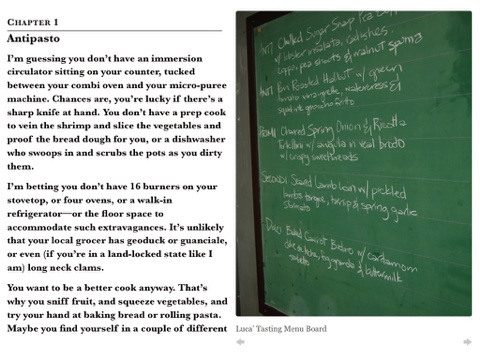 CHAPTER 1
Antipasto
I'm guessing you don't have an immersion
circulator sitting on your counter, tucked
between your combi oven and your micro-puree
machine. Chances are, you're lucky if there's a
sharp knife at hand. You don't have a prep cook
to vein the shrimp and slice the vegetables and
proof the bread dough for you, or a dishwasher
who swoops in and scrubs the pots as you dirty
them.
I'm betting you don't have 16 burners on your
stovetop, or four ovens, or a walk-in
refrigerator—or the floor space to
accommodate such extravagances. It's unlikely
that your local grocer has geoduck or guanciale,
or even (if you're in a land-locked state like I
am) long neck clams.
You want to be a better cook anyway. That's
why you sniff fruit, and squeeze vegetables, and
try your hand at baking bread or rolling pasta.
Maybe you find yourself in a couple of different
Chilled Sugar Snap Pea
w/ lobster insalata, radishes,
pea shoots & walnut
Pan Roasted Halibut w/ green
tomato vinaigrette, watercress &
Charred Spring Onion & Ricotta
Tortellini w/ in veal brodo
w/ crispy sweetbreads
SECONDI Seared Lamb loin w/ pickled
lambs tongue, turnip & spring garlic
Baked Carrot w/ cardamom
& buttermilk
sorbetto
Luca' Tasting Menu Board